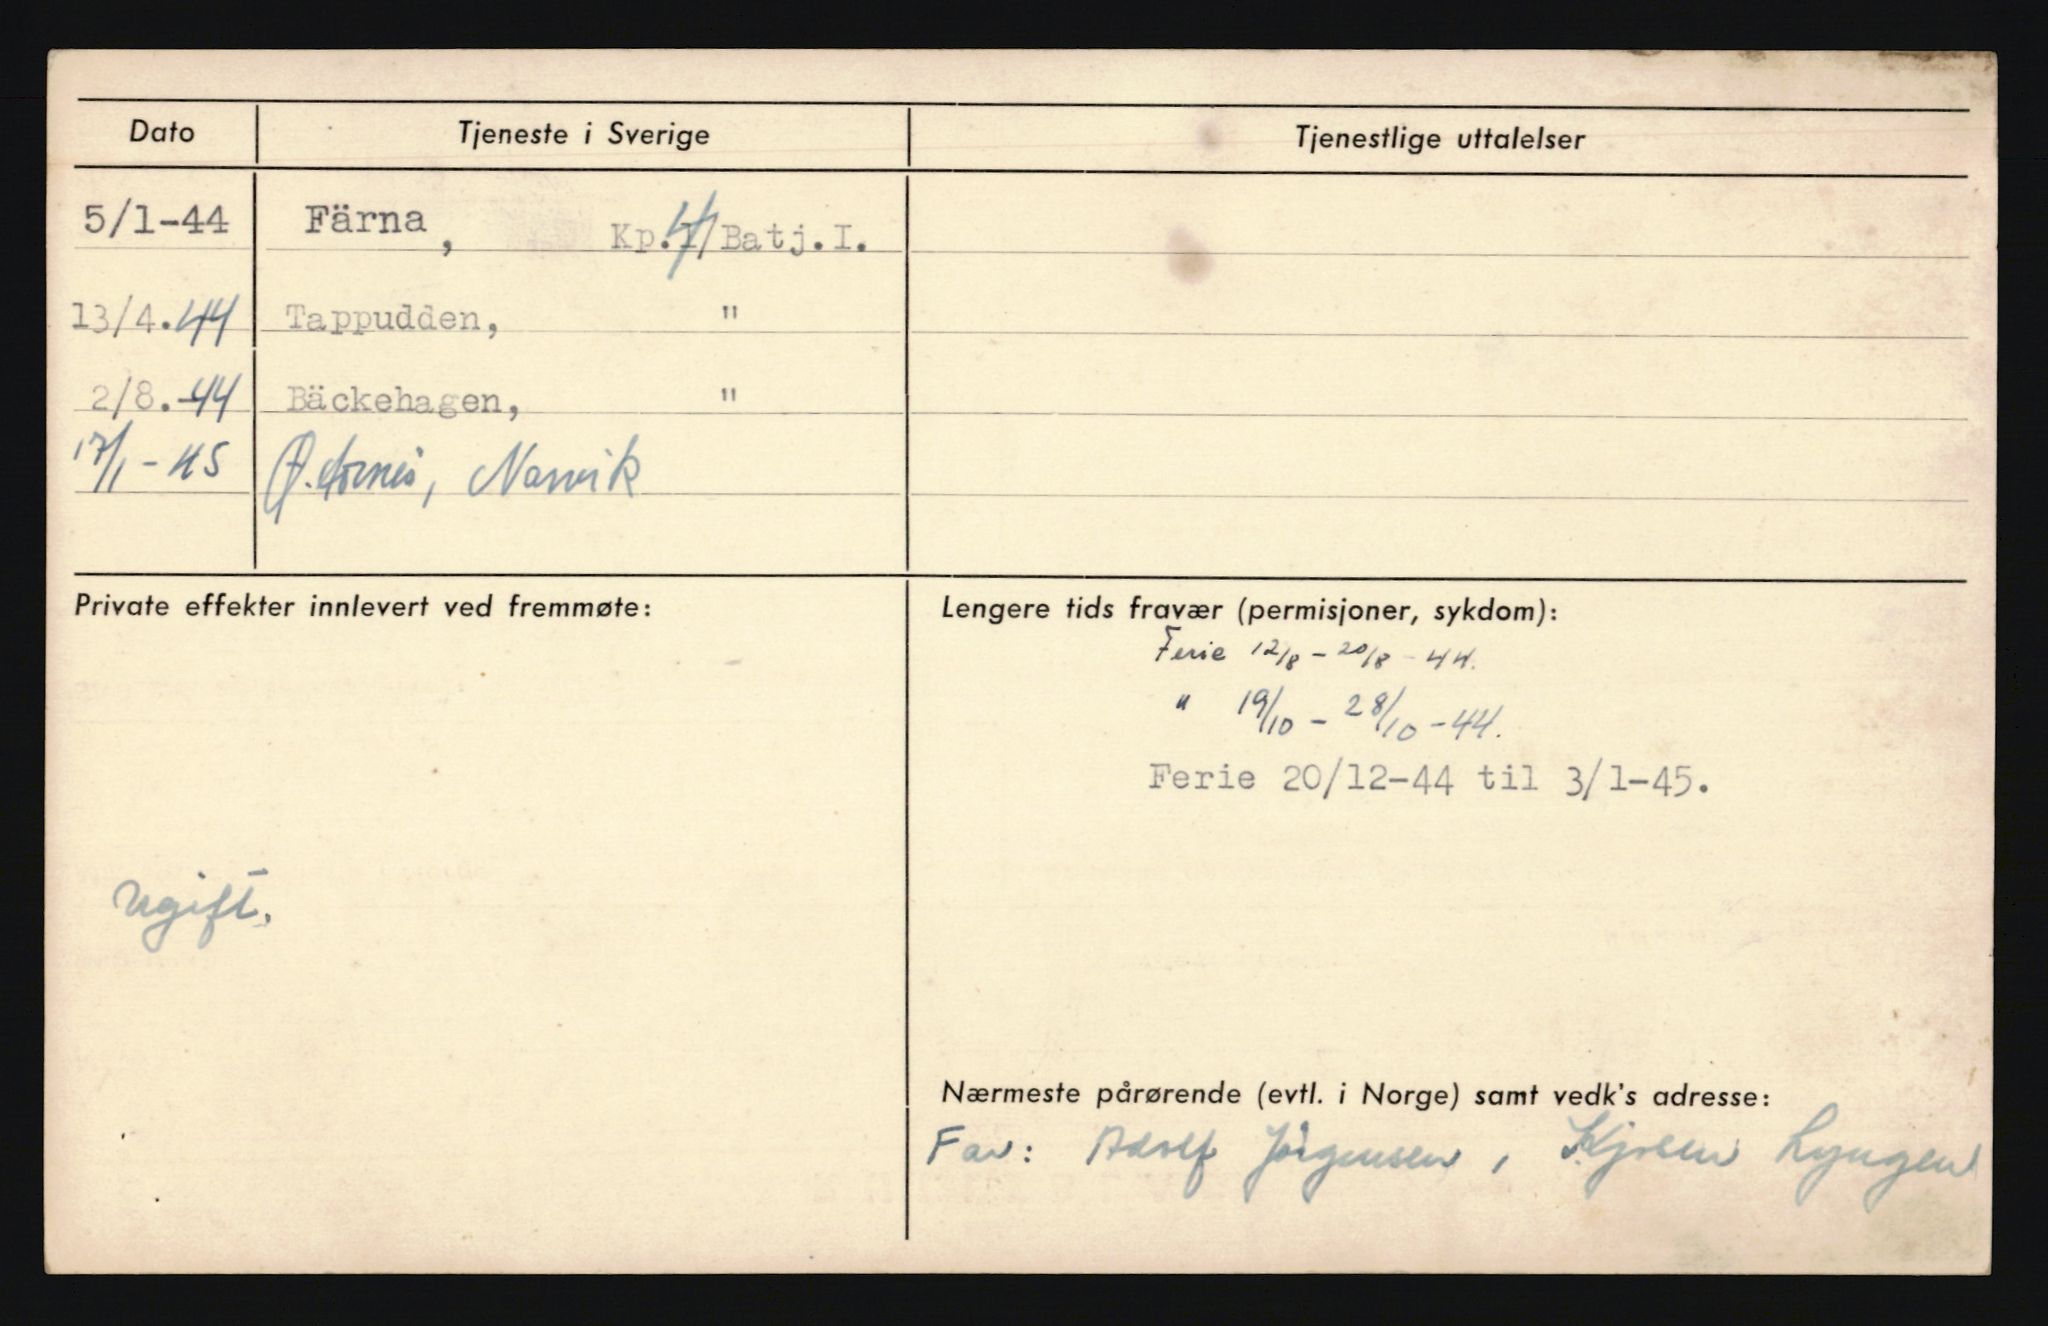 Dato Tjeneste i Sverige Tjenestlige uttalelser
5/1-44 Färna, Kp.4/Batj.I.
13/4.44 Tappudden, "
2/8.-44 Bäckehagen, "
17/1-45 Narvik
Private effekter innlevert ved fremmøte:
ugift.
Lengere tids fravær (permisjoner, sykdom):
Ferie 12/8 - 20/8 - 44.
" 19/10 - 28/10 - 44.
Ferie 20/12-44 til 3/1-45.
Nærmeste pårørende (evtl. i Norge) samt vedk's adresse:
Far: Adolf Jörgensen, Lyngen